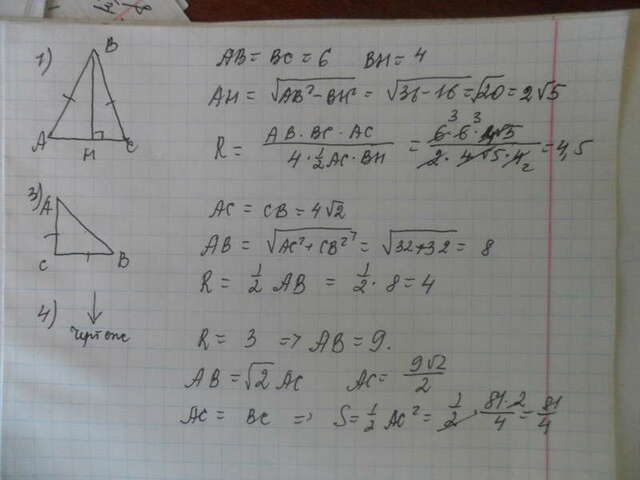 1) AB = BC = 6 BH = 4
B
AH = √(AB² - BH²) = √(36 - 16) = √20 = 2√5
A H C
R = (AB · BC · AC) / (4 · ½ AC · BH) = (6³ · 6³ · 4√5) / (2 · 4√5 · 4₂) = 4,5
3)
A
C B
AC = CB = 4√2
AB = √(AC² + CB²) = √(32 + 32) = 8
R = ½ AB = ½ · 8 = 4
4)
чертеж
R = 3 => AB = 9.
AB = √2 AC AC = 9√2/2
AC = BC => S = ½ AC² = ½ · (81 · 2)/4 = 81/4